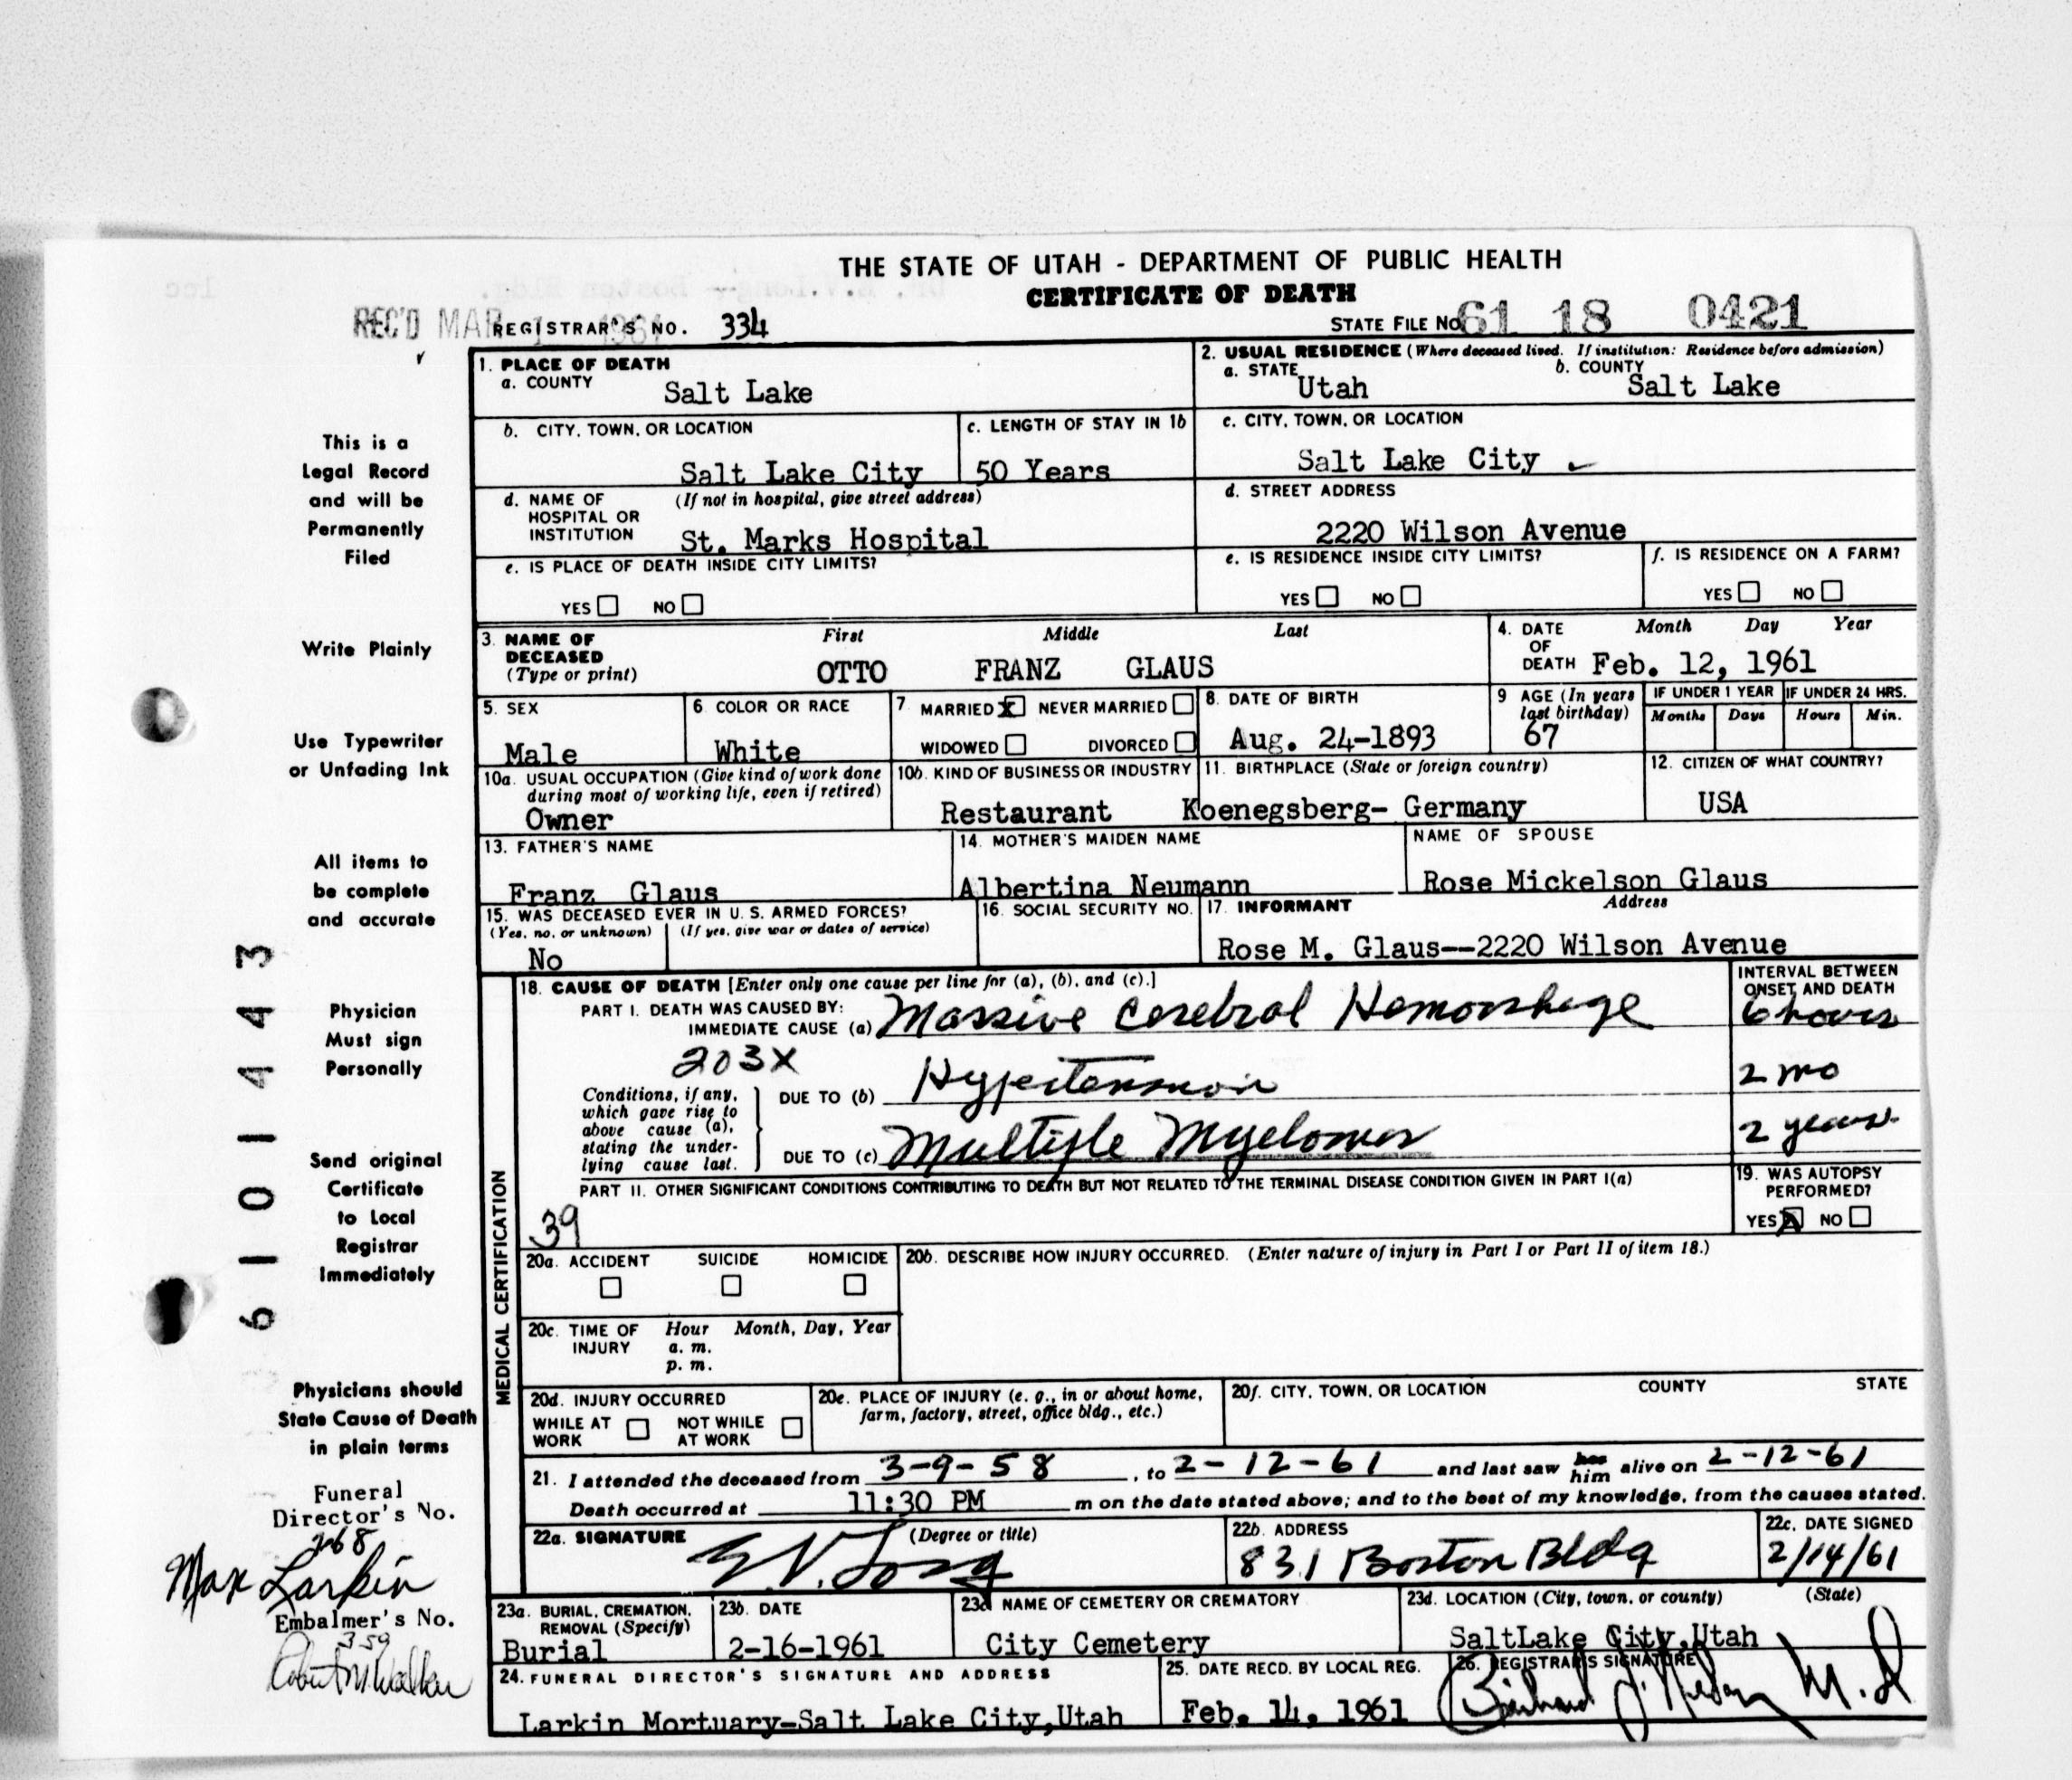 THE STATE OF UTAH - DEPARTMENT OF PUBLIC HEALTH
CERTIFICATE OF DEATH
REC'D MAR 1 1961 REGISTRAR'S NO. 334 STATE FILE NO. 61 18 0421
1. PLACE OF DEATH
a. COUNTY Salt Lake
2. USUAL RESIDENCE (Where deceased lived. If institution: Residence before admission)
a. STATE Utah b. COUNTY Salt Lake
b. CITY, TOWN, OR LOCATION Salt Lake City
c. LENGTH OF STAY IN 1b 50 Years
c. CITY, TOWN, OR LOCATION Salt Lake City
d. NAME OF HOSPITAL OR INSTITUTION (If not in hospital, give street address) St. Marks Hospital
d. STREET ADDRESS 2220 Wilson Avenue
e. IS PLACE OF DEATH INSIDE CITY LIMITS?
YES NO
e. IS RESIDENCE INSIDE CITY LIMITS?
YES NO
f. IS RESIDENCE ON A FARM?
YES NO
3. NAME OF DECEASED (Type or print)
First Middle Last
OTTO FRANZ GLAUS
4. DATE OF DEATH Month Day Year
Feb. 12, 1961
5. SEX
Male
6. COLOR OR RACE
White
7. MARRIED X NEVER MARRIED
WIDOWED DIVORCED
8. DATE OF BIRTH
Aug. 24-1893
9 AGE (In years last birthday)
67
IF UNDER 1 YEAR
Months Days
IF UNDER 24 HRS.
Hours Min.
10a. USUAL OCCUPATION (Give kind of work done during most of working life, even if retired)
Owner
10b. KIND OF BUSINESS OR INDUSTRY
Restaurant
11. BIRTHPLACE (State or foreign country)
Koenegsberg- Germany
12. CITIZEN OF WHAT COUNTRY?
USA
13. FATHER'S NAME
Franz Glaus
14. MOTHER'S MAIDEN NAME
Albertina Neumann
NAME OF SPOUSE
Rose Mickelson Glaus
15. WAS DECEASED EVER IN U. S. ARMED FORCES?
(Yes, no, or unknown) (If yes, give war or dates of service)
No
16. SOCIAL SECURITY NO.
17. INFORMANT Address
Rose M. Glaus--2220 Wilson Avenue
MEDICAL CERTIFICATION
18. CAUSE OF DEATH [Enter only one cause per line for (a), (b), and (c).]
INTERVAL BETWEEN ONSET AND DEATH
PART I. DEATH WAS CAUSED BY:
IMMEDIATE CAUSE (a) Massive Cerebral Hemorrhage 6 hours
203X
Conditions, if any, which gave rise to above cause (a), stating the underlying cause last.
DUE TO (b) Hypertension 2 mo
DUE TO (c) Multiple Myeloma 2 years
PART II. OTHER SIGNIFICANT CONDITIONS CONTRIBUTING TO DEATH BUT NOT RELATED TO THE TERMINAL DISEASE CONDITION GIVEN IN PART I(a)
39
19. WAS AUTOPSY PERFORMED?
YES X NO
20a. ACCIDENT SUICIDE HOMICIDE
20b. DESCRIBE HOW INJURY OCCURRED. (Enter nature of injury in Part I or Part II of item 18.)
20c. TIME OF INJURY Hour Month, Day, Year
a. m.
p. m.
20d. INJURY OCCURRED
WHILE AT WORK NOT WHILE AT WORK
20e. PLACE OF INJURY (e. g., in or about home, farm, factory, street, office bldg., etc.)
20f. CITY, TOWN, OR LOCATION COUNTY STATE
21. I attended the deceased from 3-9-58, to 2-12-61 and last saw her him alive on 2-12-61
Death occurred at 11:30 PM m on the date stated above; and to the best of my knowledge, from the causes stated.
22a. SIGNATURE (Degree or title)
E.V. Long
22b. ADDRESS
831 Boston Bldg
22c. DATE SIGNED
2/14/61
23a. BURIAL, CREMATION, REMOVAL (Specify)
Burial
23b. DATE
2-16-1961
23c NAME OF CEMETERY OR CREMATORY
City Cemetery
23d. LOCATION (City, town, or county) (State)
SaltLake City,Utah
24. FUNERAL DIRECTOR'S SIGNATURE AND ADDRESS
Larkin Mortuary-Salt Lake City,Utah
25. DATE RECD. BY LOCAL REG.
Feb. 14, 1961
26. REGISTRAR'S SIGNATURE
M.D
This is a
Legal Record
and will be
Permanently
Filed
Write Plainly
Use Typewriter
or Unfading Ink
All items to
be complete
and accurate
Physician
Must sign
Personally
Send original
Certificate
to Local
Registrar
Immediately
Physicians should
State Cause of Death
in plain terms
Funeral
Director's No.
268
Max Larkin
Embalmer's No.
359
6101443